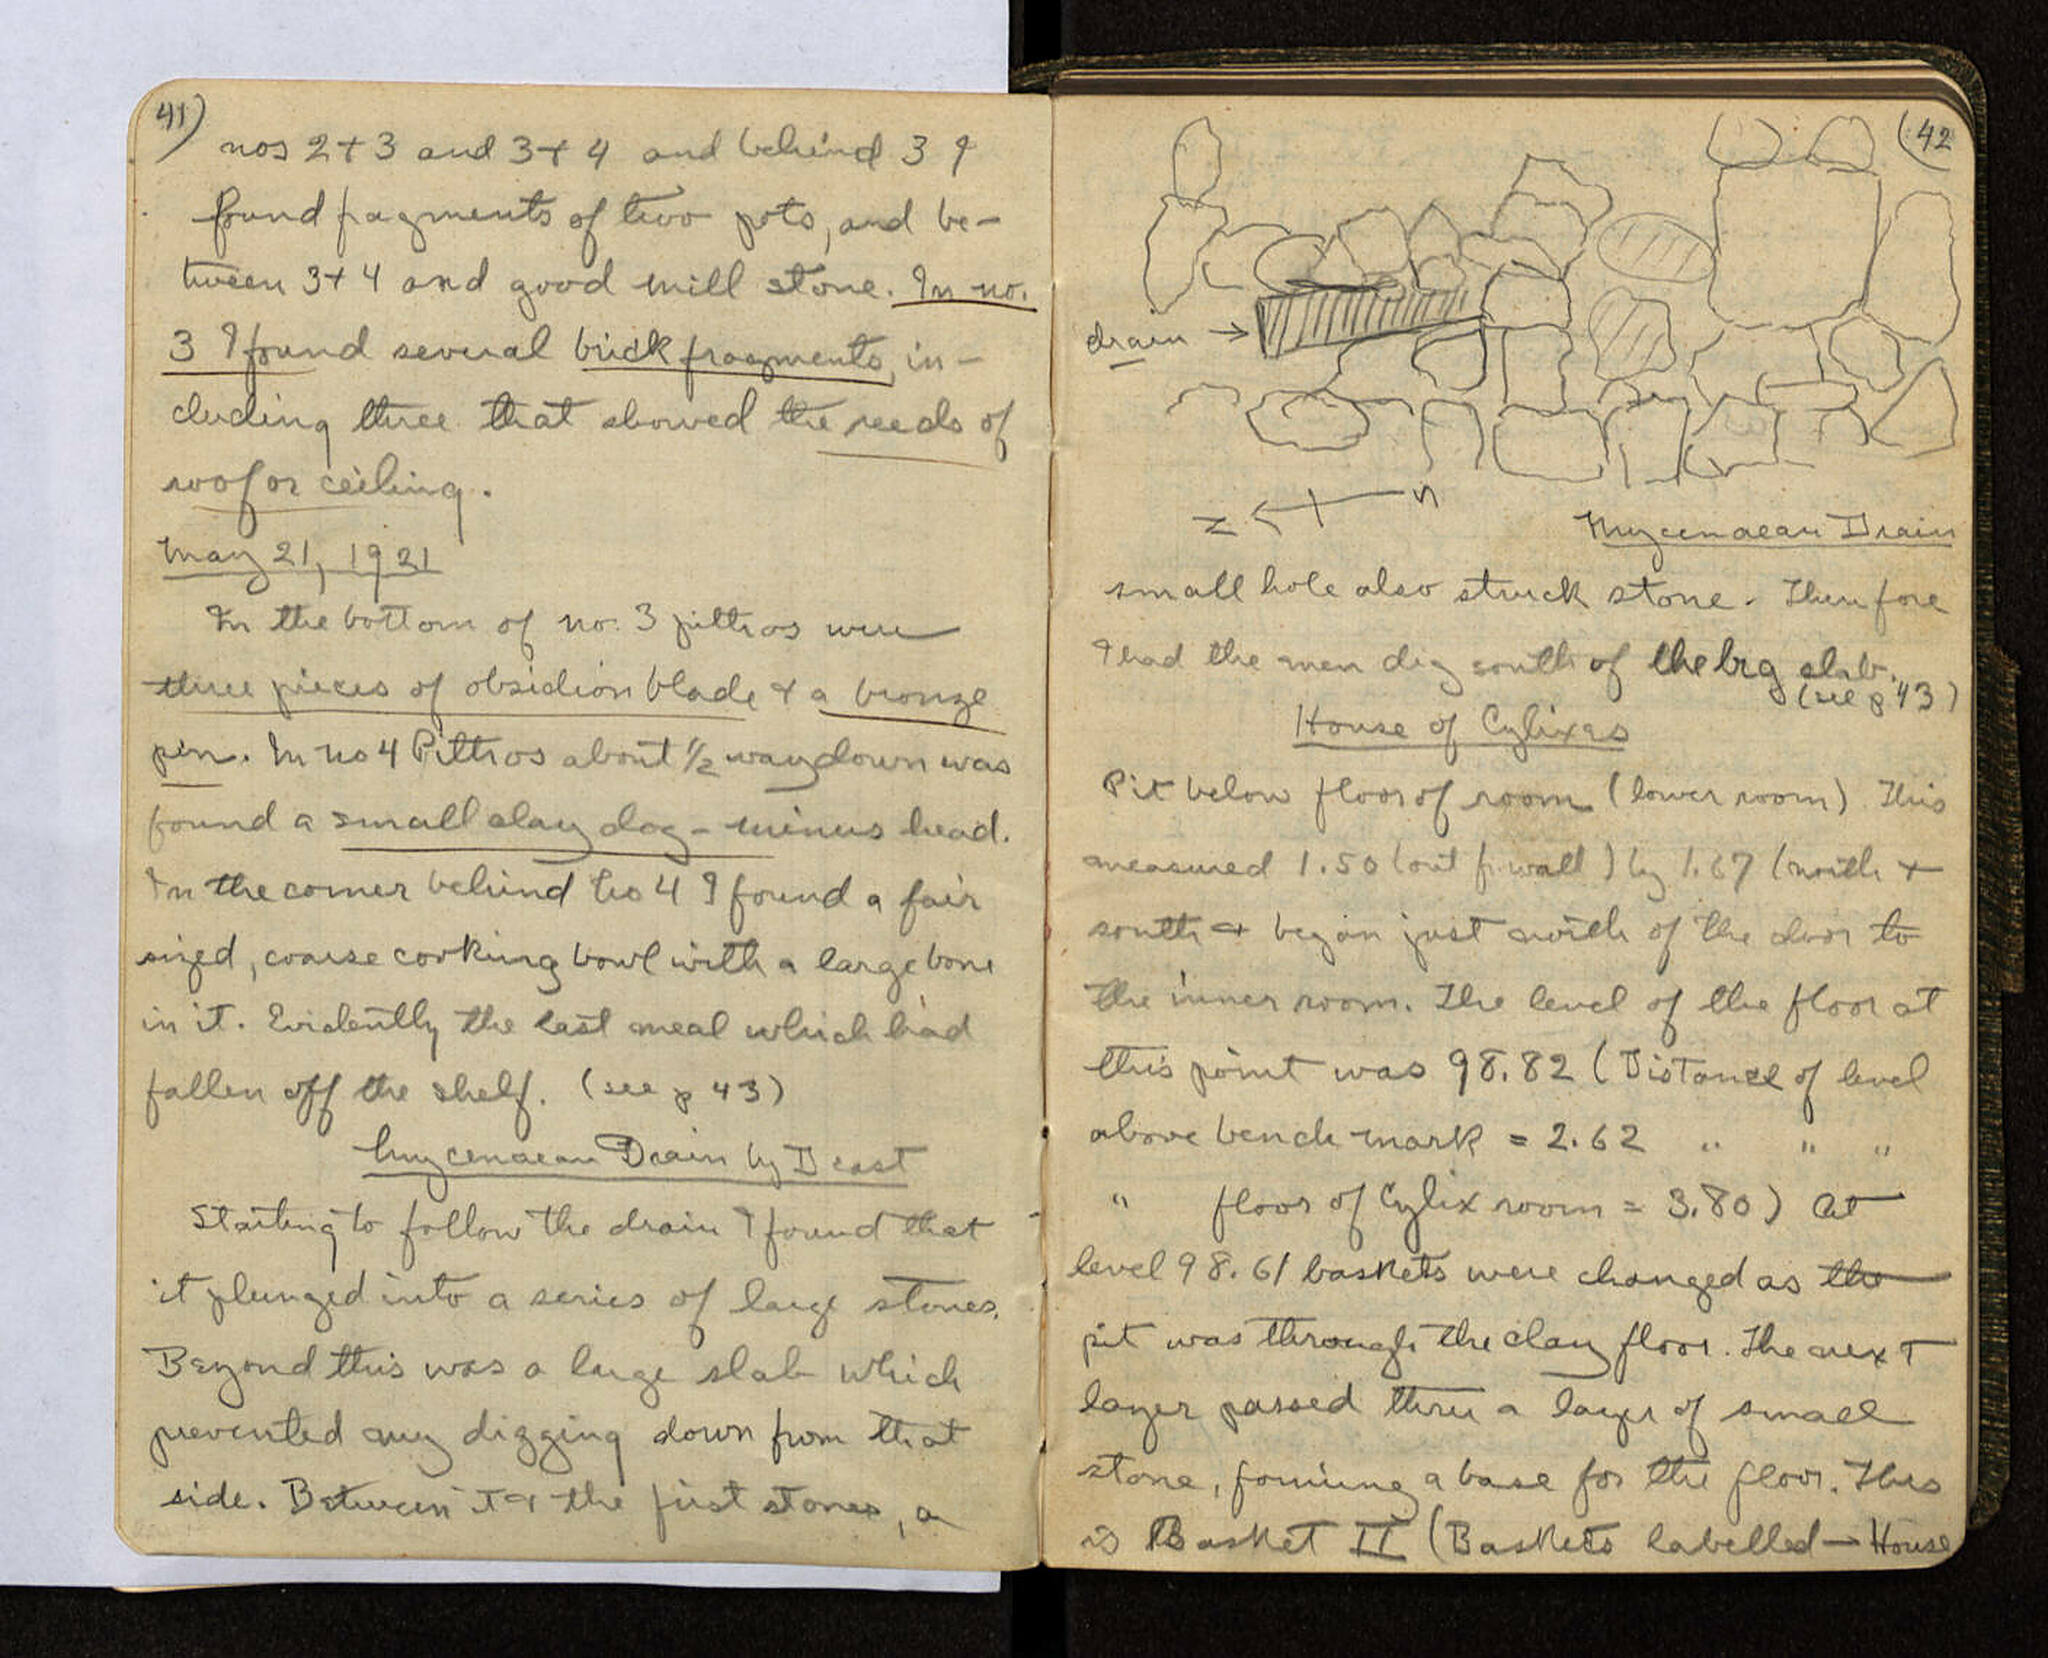 41)
nos 2 + 3 and 3 + 4 and behind 3 I
found fragments of two pots, and be-
tween 3 + 4 and good mill stone. In no.
3 I found several brick fragments, in-
cluding three that showed the reeds of
roof or ceiling.
May 21, 1921
In the bottom of no. 3 pithos were
three pieces of obsidion blade & a bronze
pin. In no 4 Pithos about 1/2 way down was
found a small clay dog - minus head.
In the corner behind No 4 I found a fair
sized, coarse cooking bowl with a large bone
in it. Evidently the last meal which had
fallen off the shelf. (see p 43)
Mycenaean Drain by D east
Starting to follow the drain I found that
it plunged into a series of large stones.
Beyond this was a large slab which
prevented any digging down from that
side. Between it & the first stones, a
(42
drain →
N S
Mycenaean Drain
small hole also struck stone. Therefore
I had the men dig south of the big slab.
(see p 43)
House of Cylixes
Pit below floor of room (lower room). This
measured 1.50 (out fr. wall) by 1.67 (north +
south & began just north of the door to
the inner room. The level of the floor at
this point was 98.82 (Distance of level
above bench mark = 2.62 " " "
" floor of Cylix room = 3.80) At
level 98.61 baskets were changed as the
pit was through the clay floor. The next
layer passed thru a layer of small
stone, forming a base for the floor. This
is Basket II (Baskets labelled → House